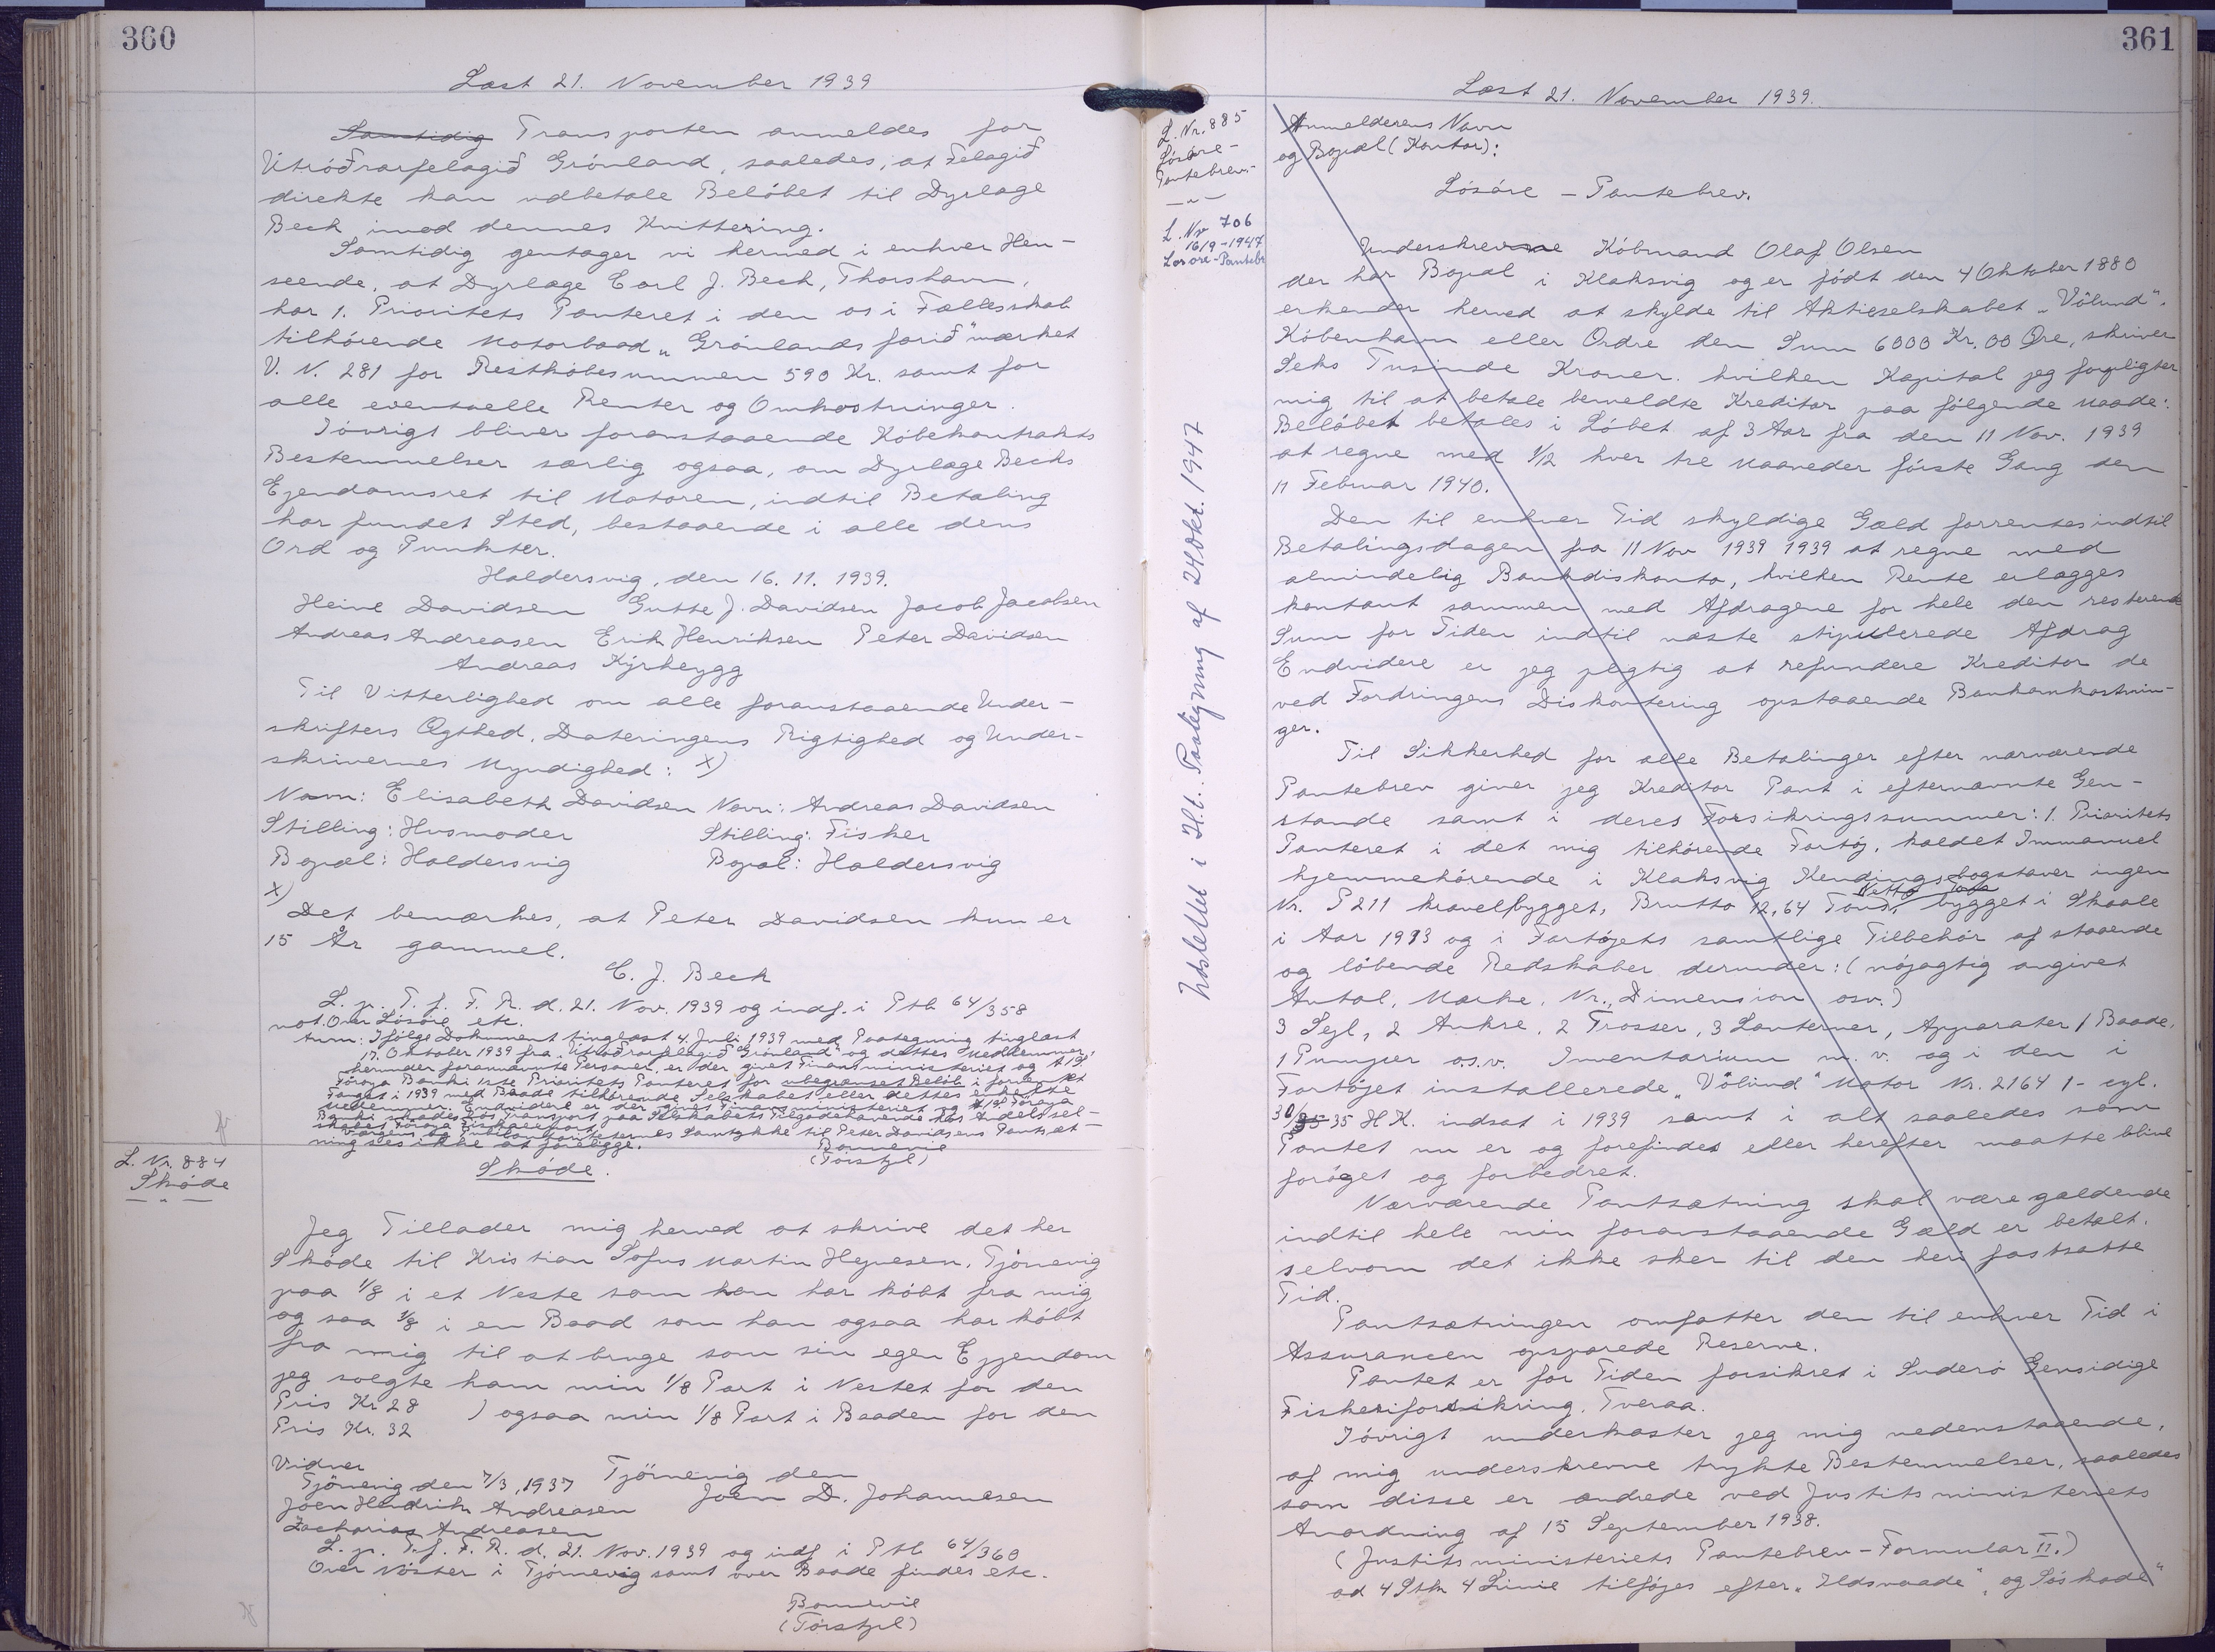 360
Læst 21. November 1939
Samtidig Transporten anmeldes for
Útróðrarfelagið Grónland, saaledes, at Felagið
direkte kan udbetale Belóbet til Dyrlæge
Beck imod dennes Kvittering.
Samtidig gentager vi hermed i enhver Hen-
seende, at Dyrlæge Carl J. Beck, Thorshavn,
har 1. Prioritets Panteret i den os i Fællesskab
tilhórende Motorbaad „Grónlands farið" mærket
V. N. 281 for Restkóbesummen 590 Kr. samt for
alle eventuelle Renter og Omkostninger.
Ióvrigt bliver foranstaaende Kóbekontrakts
Bestemmelser særlig ogsaa, om Dyrlæge Becks
Ejendomsret til Motoren, indtil Betaling
har fundet Sted, bestaaende i alle dens
Ord og Punkter.
Haldersvig, den 16. 11. 1939.
Heine Davidsen Gutte J. Davidsen Jacob Jacobsen
Andreas Andreasen Erik Henriksen Peter Davidsen
Andreas Kýrheygg
Til Vitterlighed om alle foranstaaende Under-
skrifters Ægthed, Dateringens Rigtighed og Under-
skrivernes Myndighed: X)
Navn: Elisabeth Davidsen Navn: Andreas Davidsen
Stilling: Husmoder Stilling: Fisker
Bopæl: Haldersvig Bopæl: Haldersvig
X)
Det bemærkes, at Peter Davidsen kun er
15 År gammel.
C. J. Beck
L. p. T. f. F. R. d. 21. Nov. 1939 og indf. i Ptb 64/358
not. Over Lósóre etc.
Anm: Ifólge Dokument tinglæst 4. Juli 1939 med Paategning tinglæst
17. Oktober 1939 fra „Útróðrarfelagið Grónland" og dettes Medlemmer,
herunder forannævnte Personer, er der givet Finansministeriet og A/S
Fóroya Banki 1ste Prioritets Panteret for ubegrænset Belób i
Fanget i 1939 med Baade tilhórende Selskabet eller dettes enkelte
Medlemmer. Endvidere er der givet Finansministeriet og A/S Fóroya
Banki Transport paa Selskabets Tilgodehavende hos Andelssel-
skabet Fóroya Fiskaexport
Værgens og Samtykke til Peter Davidsens Pantsæt-
ning ses ikke at foreligge.
(Tórstjl)
L. Nr. 884
Skóde
— " —
Skóde.
Jeg Tillader mig herved at skrive det her
Skóde til Kristian Sofus Martin Hejnesen, Tjörnevig
paa 1/8 i et Neste som han har kóbt fra mig
og saa 1/8 i en Baad som han ogsaa har kóbt
fra mig til at bruge som sin egen Ejjendom
jeg sælgte ham min 1/8 Part i Nestet for den
Pris Kr 28 ) ogsaa min 1/8 Part i Baaden for den
Pris Kr. 32
Vidner
Tjörnevig den 7/3, 1937 Tjörnevig den
Joen Hendrik Andreasen Joen D. Johannesen
Zacharias Andreasen
L. p. T. f. F. R. d. 21. Nov. 1939 og indf i Ptb 64/360
Over Nóster i Tjórnevig samt over Baade findes etc.
(Tórstjl)
361
Læst 21. November 1939.
L. Nr. 885
Lósóre-
Pantebrev.
— " —
L. Nr 706
16/9-1947
Lösöre-Pantebr
Udslettet i H.t. Paategning af 24 Okt. 1947
Anmelderens Navn
og Bopæl (Kontor):
Lósóre – Pantebrev.
Underskrevne Kóbmand Olaf Olsen
der har Bopæl i Klaksvig og er fódt den 4 Oktober 1880
erkender herved at skylde til Aktieselskabet „Vólund",
Kóbenhavn eller Ordre den Sum 6000 Kr. 00 Øre, skriver
Seks Tusinde Kroner. hvilken Kapital jeg forpligter
mig til at betale bemeldte Kreditor paa fólgende Maade:
Belóbet betales i Lóbet af 3 Aar fra den 11 Nov. 1939
at regne med 1/12 hver tre Maaneder fórste Gang den
11 Februar 1940.
Den til enhver Tid skyldige Gæld forrentes indtil
Betalingsdagen fra 11 Nov 1939 1939 at regne med
almindelig Bankdiskonto, hvilken Rente erlægges
kontant sammen med Afdragene for hele den resterende
Sum for Tiden indtil næste stipulerede Afdrag
Endvidere er jeg pligtig at refundere Kreditor de
ved Fordringens Diskontering opstaaende Bankomkostnin-
ger.
Til Sikkerhed for alle Betalinger efter nærværende
Pantebrev giver jeg Kreditor Pant i efternævnte Gen-
stande samt i deres Forsikringssummer: 1. Prioritets
Panteret i det mig tilhórende Fartój, kaldet Immanuel
hjemmehórende i Klaksvig Kendingsbogstaver ingen
Nr. P 211 kravelbygget, Brutto 12,64 Tons, Netto Tons bygget i Skaale
i Aar 1933 og i Fartójets samtlige Tilbehór af staaende
og lóbende Redskaber derunder: (nójagtig angivet
Antal, Mærke, Nr., Dimension osv.)
3 Sejl, 2 Ankre, 2 Trosser, 3 Lanterner, Apparater 1 Baade,
1 Pumper o.s.v. Inventarium m. v. og i den i
Fartójet installerede „Vólund" Motor Nr. 2164 1- cyl.
30/35 35 H K. indsat i 1939 samt i alt saaledes som
Pantet nu er og forefindes eller herefter maatte blive
foróget og forbedret.
Nærværende Pantsætning skal være gældende
indtil hele min foranstaaende Gæld er betalt,
selvom det ikke sker til den heri fastsatte
Tid.
Pantsætningen omfatter den til enhver Tid i
Assurancen opsparede Reserve.
Pantet er for Tiden forsikret i Suderó Gensidige
Fiskeriforsikring, Tveraa.
Ióvrigt underkaster jeg mig nedenstaaende,
af mig underskrevne trykte Bestemmelser, saaledes
som disse er ændrede ved Justitsministeriets
Anordning af 15 September 1938.
(Justitsministeriets Pantebrev-Formular II.)
ad 4 Stk 4 Linie tilfójes efter „Ildsvaade" „og Sóskade"